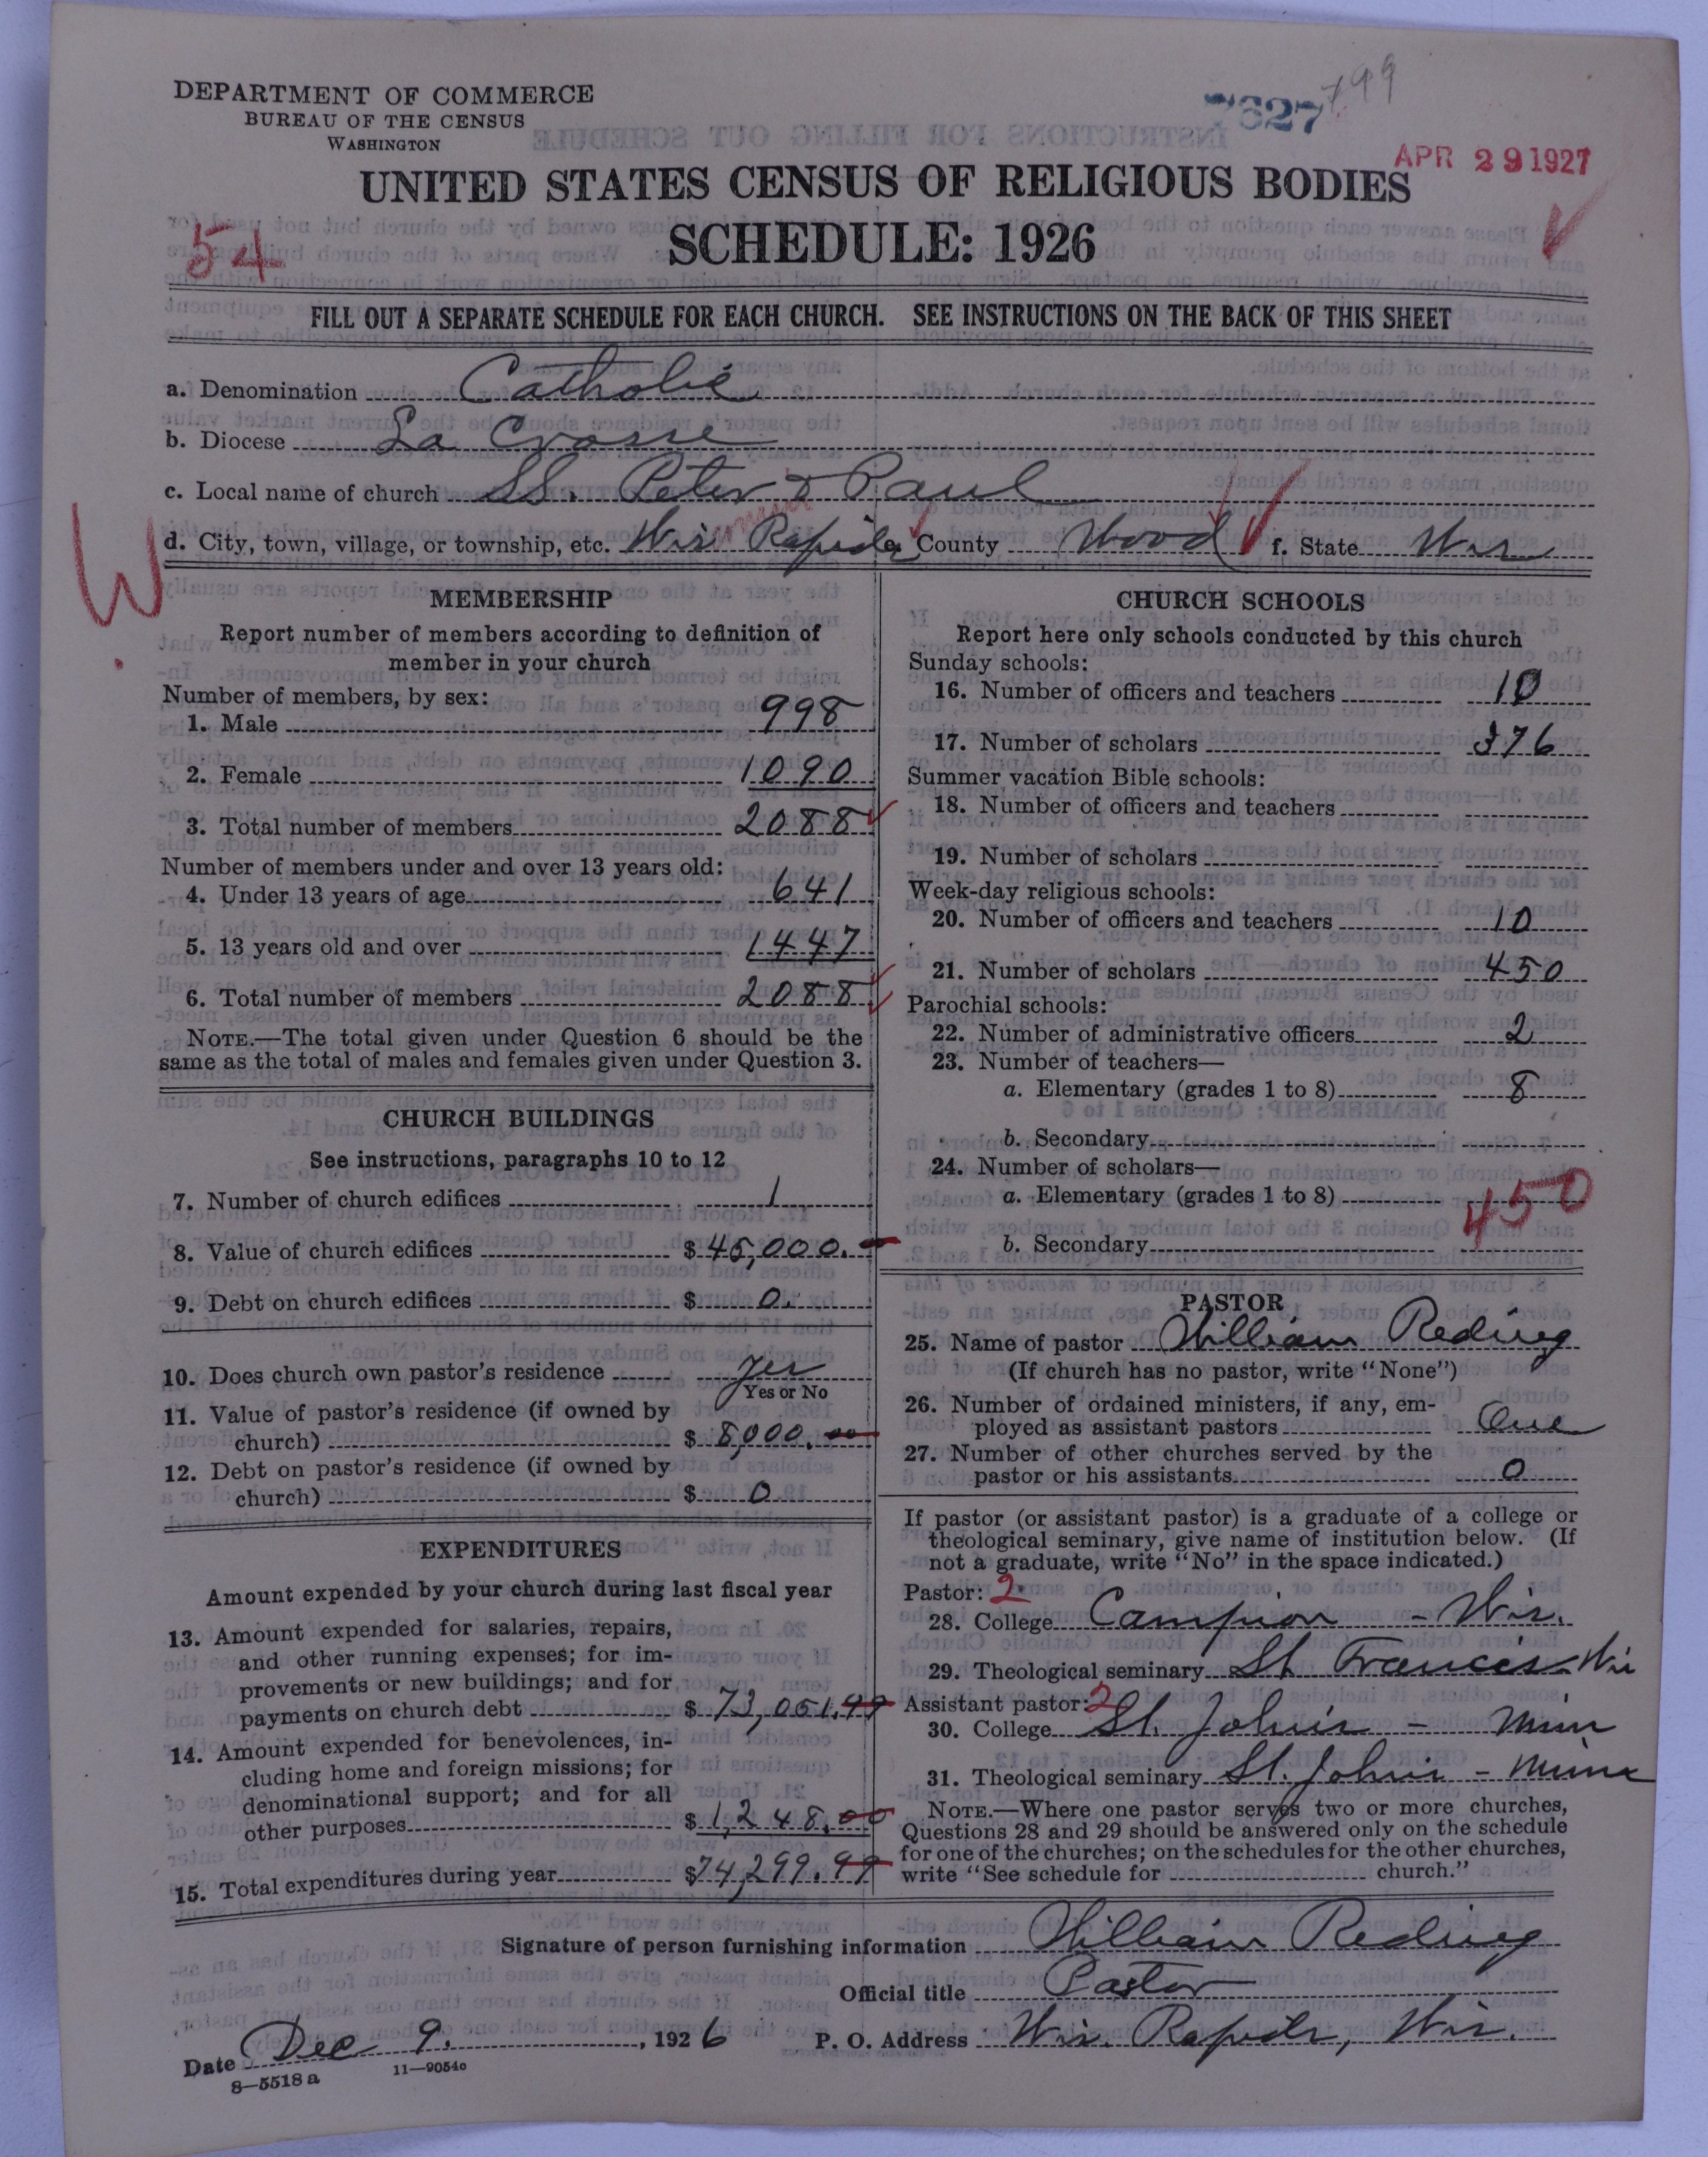 DEPARTMENT OF COMMERCE
BUREAU OF THE CENSUS
WASHINGTON
7627
799
APR 29 1927
UNITED STATES CENSUS OF RELIGIOUS BODIES
SCHEDULE: 1926
54
FILL OUT A SEPARATE SCHEDULE FOR EACH CHURCH. SEE INSTRUCTIONS ON THE BACK OF THIS SHEET
a. Denomination Catholic
b. Diocese La Crosse
c. Local name of church SS. Peter & Paul
d. City, town, village, or township, etc. Wis Rapids e. County Wood f. State Wis
W
MEMBERSHIP
Report number of members according to definition of
member in your church
Number of members, by sex:
1. Male 998
2. Female 1090
3. Total number of members 2088
Number of members under and over 13 years old:
4. Under 13 years of age 641
5. 13 years old and over 1447
6. Total number of members 2088
NOTE.—The total given under Question 6 should be the
same as the total of males and females given under Question 3.
CHURCH BUILDINGS
See instructions, paragraphs 10 to 12
7. Number of church edifices 1
8. Value of church edifices $ 45,000.
9. Debt on church edifices $ 0.
10. Does church own pastor's residence Yes
Yes or No
11. Value of pastor's residence (if owned by
church) $ 8,000.00
12. Debt on pastor's residence (if owned by
church) $ 0
EXPENDITURES
Amount expended by your church during last fiscal year
13. Amount expended for salaries, repairs,
and other running expenses; for im-
provements or new buildings; and for
payments on church debt $ 73,051.99
14. Amount expended for benevolences, in-
cluding home and foreign missions; for
denominational support; and for all
other purposes $ 1,248.00
15. Total expenditures during year $74,299.99
CHURCH SCHOOLS
Report here only schools conducted by this church
Sunday schools:
16. Number of officers and teachers 10
17. Number of scholars 376
Summer vacation Bible schools:
18. Number of officers and teachers
19. Number of scholars
Week-day religious schools:
20. Number of officers and teachers 10
21. Number of scholars 450
Parochial schools:
22. Number of administrative officers 2
23. Number of teachers—
a. Elementary (grades 1 to 8) 8
b. Secondary
24. Number of scholars—
a. Elementary (grades 1 to 8) 450
b. Secondary
PASTOR
25. Name of pastor William Reding
(If church has no pastor, write "None")
26. Number of ordained ministers, if any, em-
ployed as assistant pastors One
27. Number of other churches served by the
pastor or his assistants 0
If pastor (or assistant pastor) is a graduate of a college or
theological seminary, give name of institution below. (If
not a graduate, write "No" in the space indicated.)
Pastor: 2
28. College Campion - Wis.
29. Theological seminary St Francis Wis
Assistant pastor: 2
30. College St. John's - Minn
31. Theological seminary St. John's - Minn
NOTE.—Where one pastor serves two or more churches,
Questions 28 and 29 should be answered only on the schedule
for one of the churches; on the schedules for the other churches,
write "See schedule for church."
Signature of person furnishing information William Reding
Official title Pastor
Date Dec 9. , 1926 P. O. Address Wis. Rapids, Wis.
8—5518 a 11—9054c